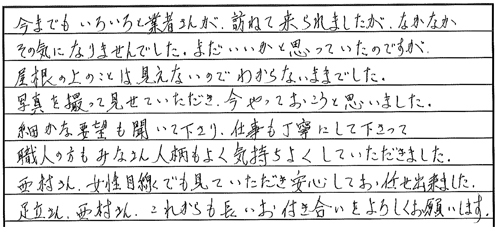 今までもいろいろと業者さんが、訪ねて来られましたが、なかなか
その気になりませんでした。まだいいかと思っていたのですが、
屋根の上のことは見えないのでわからないままでした。
写真を撮って見せていただき、今やっておこうと思いました。
細かな要望も聞いて下さり、仕事も丁寧にして下さって
職人の方もみなさん人柄もよく気持ちよくしていただきました。
西村さん、女性目線でも見ていただき安心してお任せ出来ました。
足立さん、西村さん、これからも長いお付き合いをよろしくお願いします。